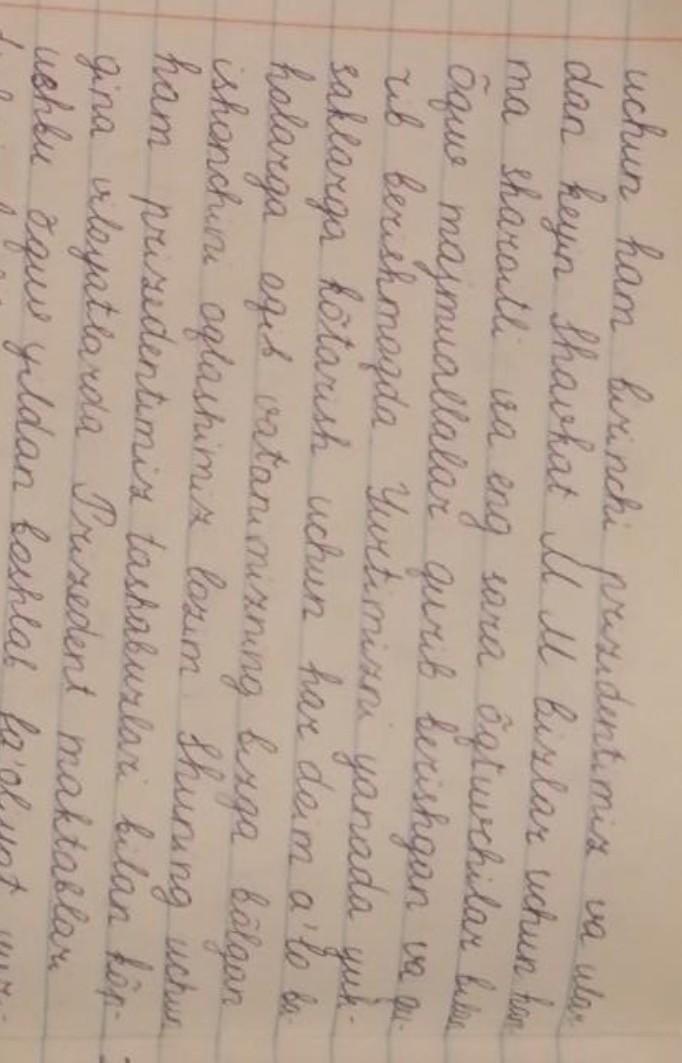 uchun ham birinchi prizidentimiz va ular-
dan keyin Shavkat M M bizlar uchun ham
ma sharoitli va eng sara õqituvchilar bilan
õquv majmuallalar qurib berishgan va qu-
rib berishmoqda Yurtimizni yanada yuk-
saklarga kõtarish uchun har doim a'lo ba-
holarga oqib vatanimizning bizga bõlgan
ishonchini oqlashimiz lozim. Shuning uchun
ham prizedentimiz tashabuzlari bilan kõp-
gina viloyatlarda Prizedent maktablar
ushbu õquv yildan boshlab fa'oliyat yur-